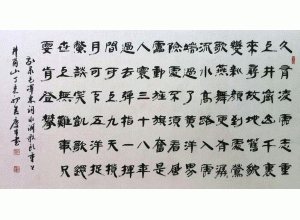 久有凌雲志重
上井岡山千裏
來尋故地舊貌
變新顏到處鶯
歌燕舞更有潺
潺流水高路入
雲端過了黃洋
界險處不須看
風雷動旌旗奮
是人寰三十八年
過去彈指一揮
間可上九天攬
月可下五洋捉
鱉談笑凱歌還
世上無難事只
要肯登攀
毛澤東詞水調歌頭重上
井岡山丁亥初夏書